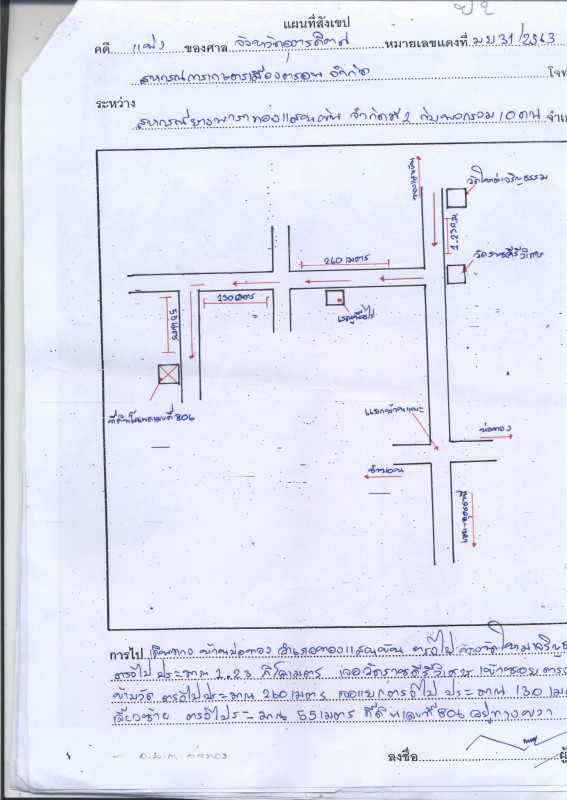 แผนที่สังเขป
คดี แพ่ง ของศาล จังหวัดอุตรดิตถ์ หมายเลขแดงที่ มบ 31/2563
สหกรณ์การเกษตรเมืองตรอน จำกัด โจท
ระหว่าง
สหกรณ์ยางพาราทองแสนขัน จำกัดที่ 1 กับพวกรวม 10 คน จำเ
ทองแสนขัน
วัดใหม่เจริญธรรม
1.23 ก.ม.
วัดราษฎร์คีรีวิเศษ
260 เมตร
130 เมตร
55 เมตร
ที่ดินโฉนดเลขที่ 806
บ่อทอง
การไป เดินทาง บ้านบ่อทอง อำเภอทองแสนขัน ตรงไป ถึงวัดใหม่เจริญธ
ตรงไปประมาณ 1.23 กิโลเมตร เจอวัดราษฎร์คีรีวิเศษ เข้าซอยตรง
ข้ามวัด ตรงไปประมาณ 260 เมตร เจอแยกตรงไป ประมาณ 130 เม
เลี้ยวซ้าย ตรงไประมาณ 55 เมตร ที่ดินเลขที่ 806 อยู่ทางขวา
ลงชื่อ ผู้